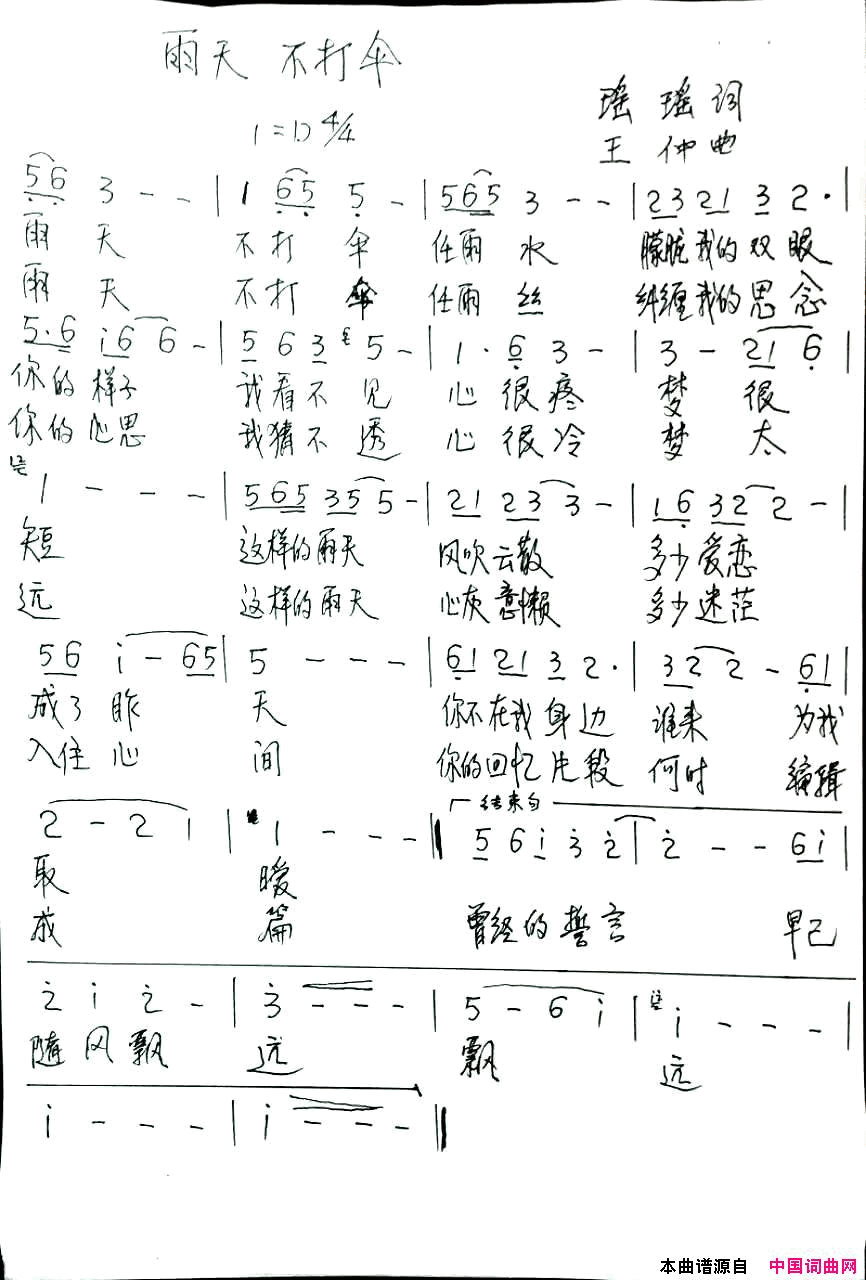 雨天 不打伞
1=D 4/4
瑶瑶词
王仲曲
56 3 - - | 1 65 5 - | 565 3 - - | 23 21 3 2 · |
雨天 不打伞 任雨水 朦胧我的双眼
雨天 不打伞 任雨丝 纠缠我的思念
5·6 i6 6 - | 5 6 3 5 - | 1 · 6 3 - | 3 - 21 6 |
你的样子 我看不见 心很疼 梦很
你的心思 我猜不透 心很冷 梦太
1 - - - | 565 35 5 - | 21 23 3 - | 16 32 2 - |
短 这样的雨天 风吹云散 多少爱恋
远 这样的雨天 心灰意懒 多少迷茫
56 i - 65 | 5 - - - | 61 21 3 2 · | 32 2 - 61 |
成了昨天 你不在我身边 谁来 为我
入住心间 你的回忆片段 何时 编辑
结束句
2 - 2 i | 1 - - - || 5 6 i 3 2 | 2 - - 6i |
取暖 曾经的誓言 早已
成篇
2 i 2 - | 3 - - - | 5 - 6 i | i - - - |
随风飘远 飘远
i - - - | i - - - ||
本曲谱源自 中国词曲网